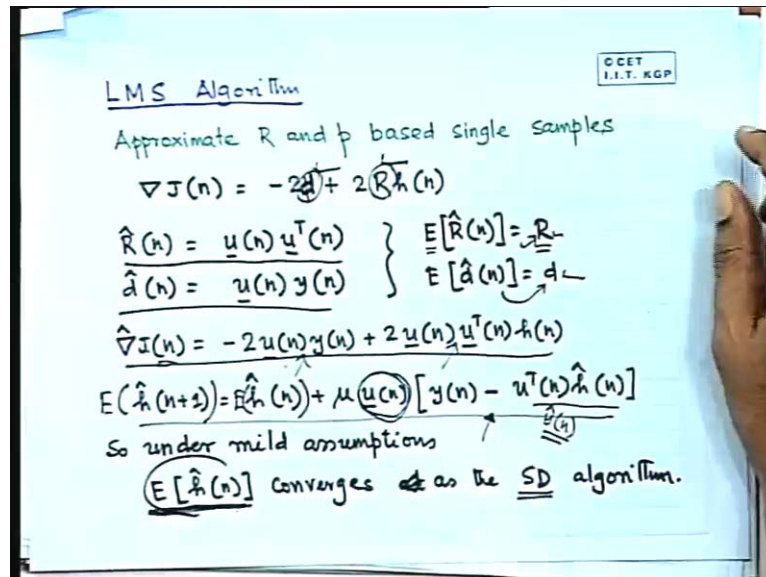 © CET
I.I.T. KGP
LMS Algorithm
Approximate R and p based single samples
∇J(n) = -2d + 2Rh(n)
R̂(n) = u(n) uᵀ(n) } E[R̂(n)] = R
d̂(n) = u(n) y(n) E[d̂(n)] = d
∇̂J(n) = -2u(n)y(n) + 2u(n)uᵀ(n)h(n)
E(ĥ(n+1)) = E(ĥ(n)) + μ u(n) [y(n) - uᵀ(n)ĥ(n)]
So under mild assumptions
E[ĥ(n)] converges as the SD algorithm.